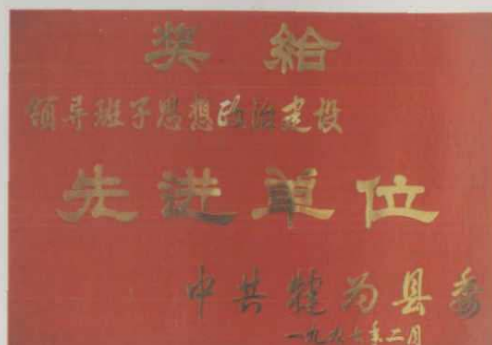 奖给
领导班子思想政治建设
先进单位
中共犍为县委
一九九七年二月